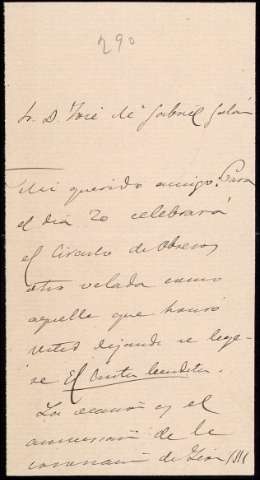 290
Sr. D. José Mª Gabriel Galán
Mi querido amigo: Para
el dia 20 celebrará
el Circulo de Obreros
otra velada como
aquella que honró
usted dejando se leye-
se El Cristo bendito.
La ocasión es el
aniversario de la
coronación de León XIII